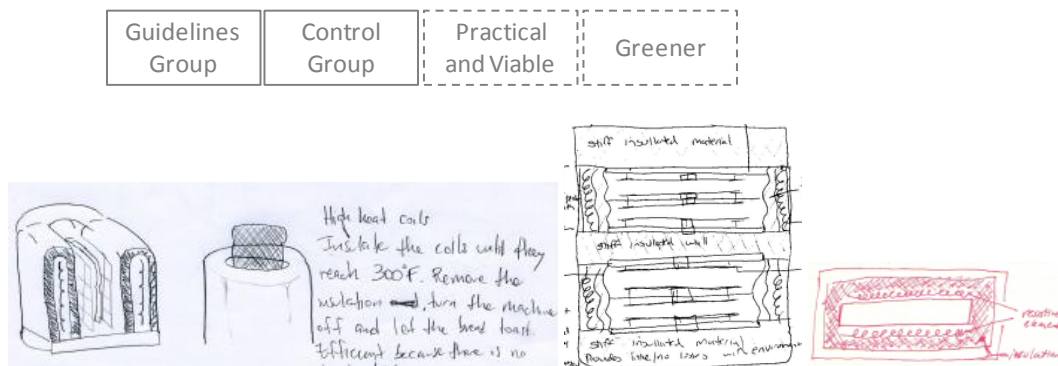 Guidelines
Group
Control
Group
Practical
and Viable
Greener
High heat coils
Insulate the coils until they
reach 300°F. Remove the
insulation, turn the machine
off and let the bread toast.
Efficient because there is no
stiff insullated material
stiff insulated wall
stiff insulated material
Provides little/no losses with environment
insulation